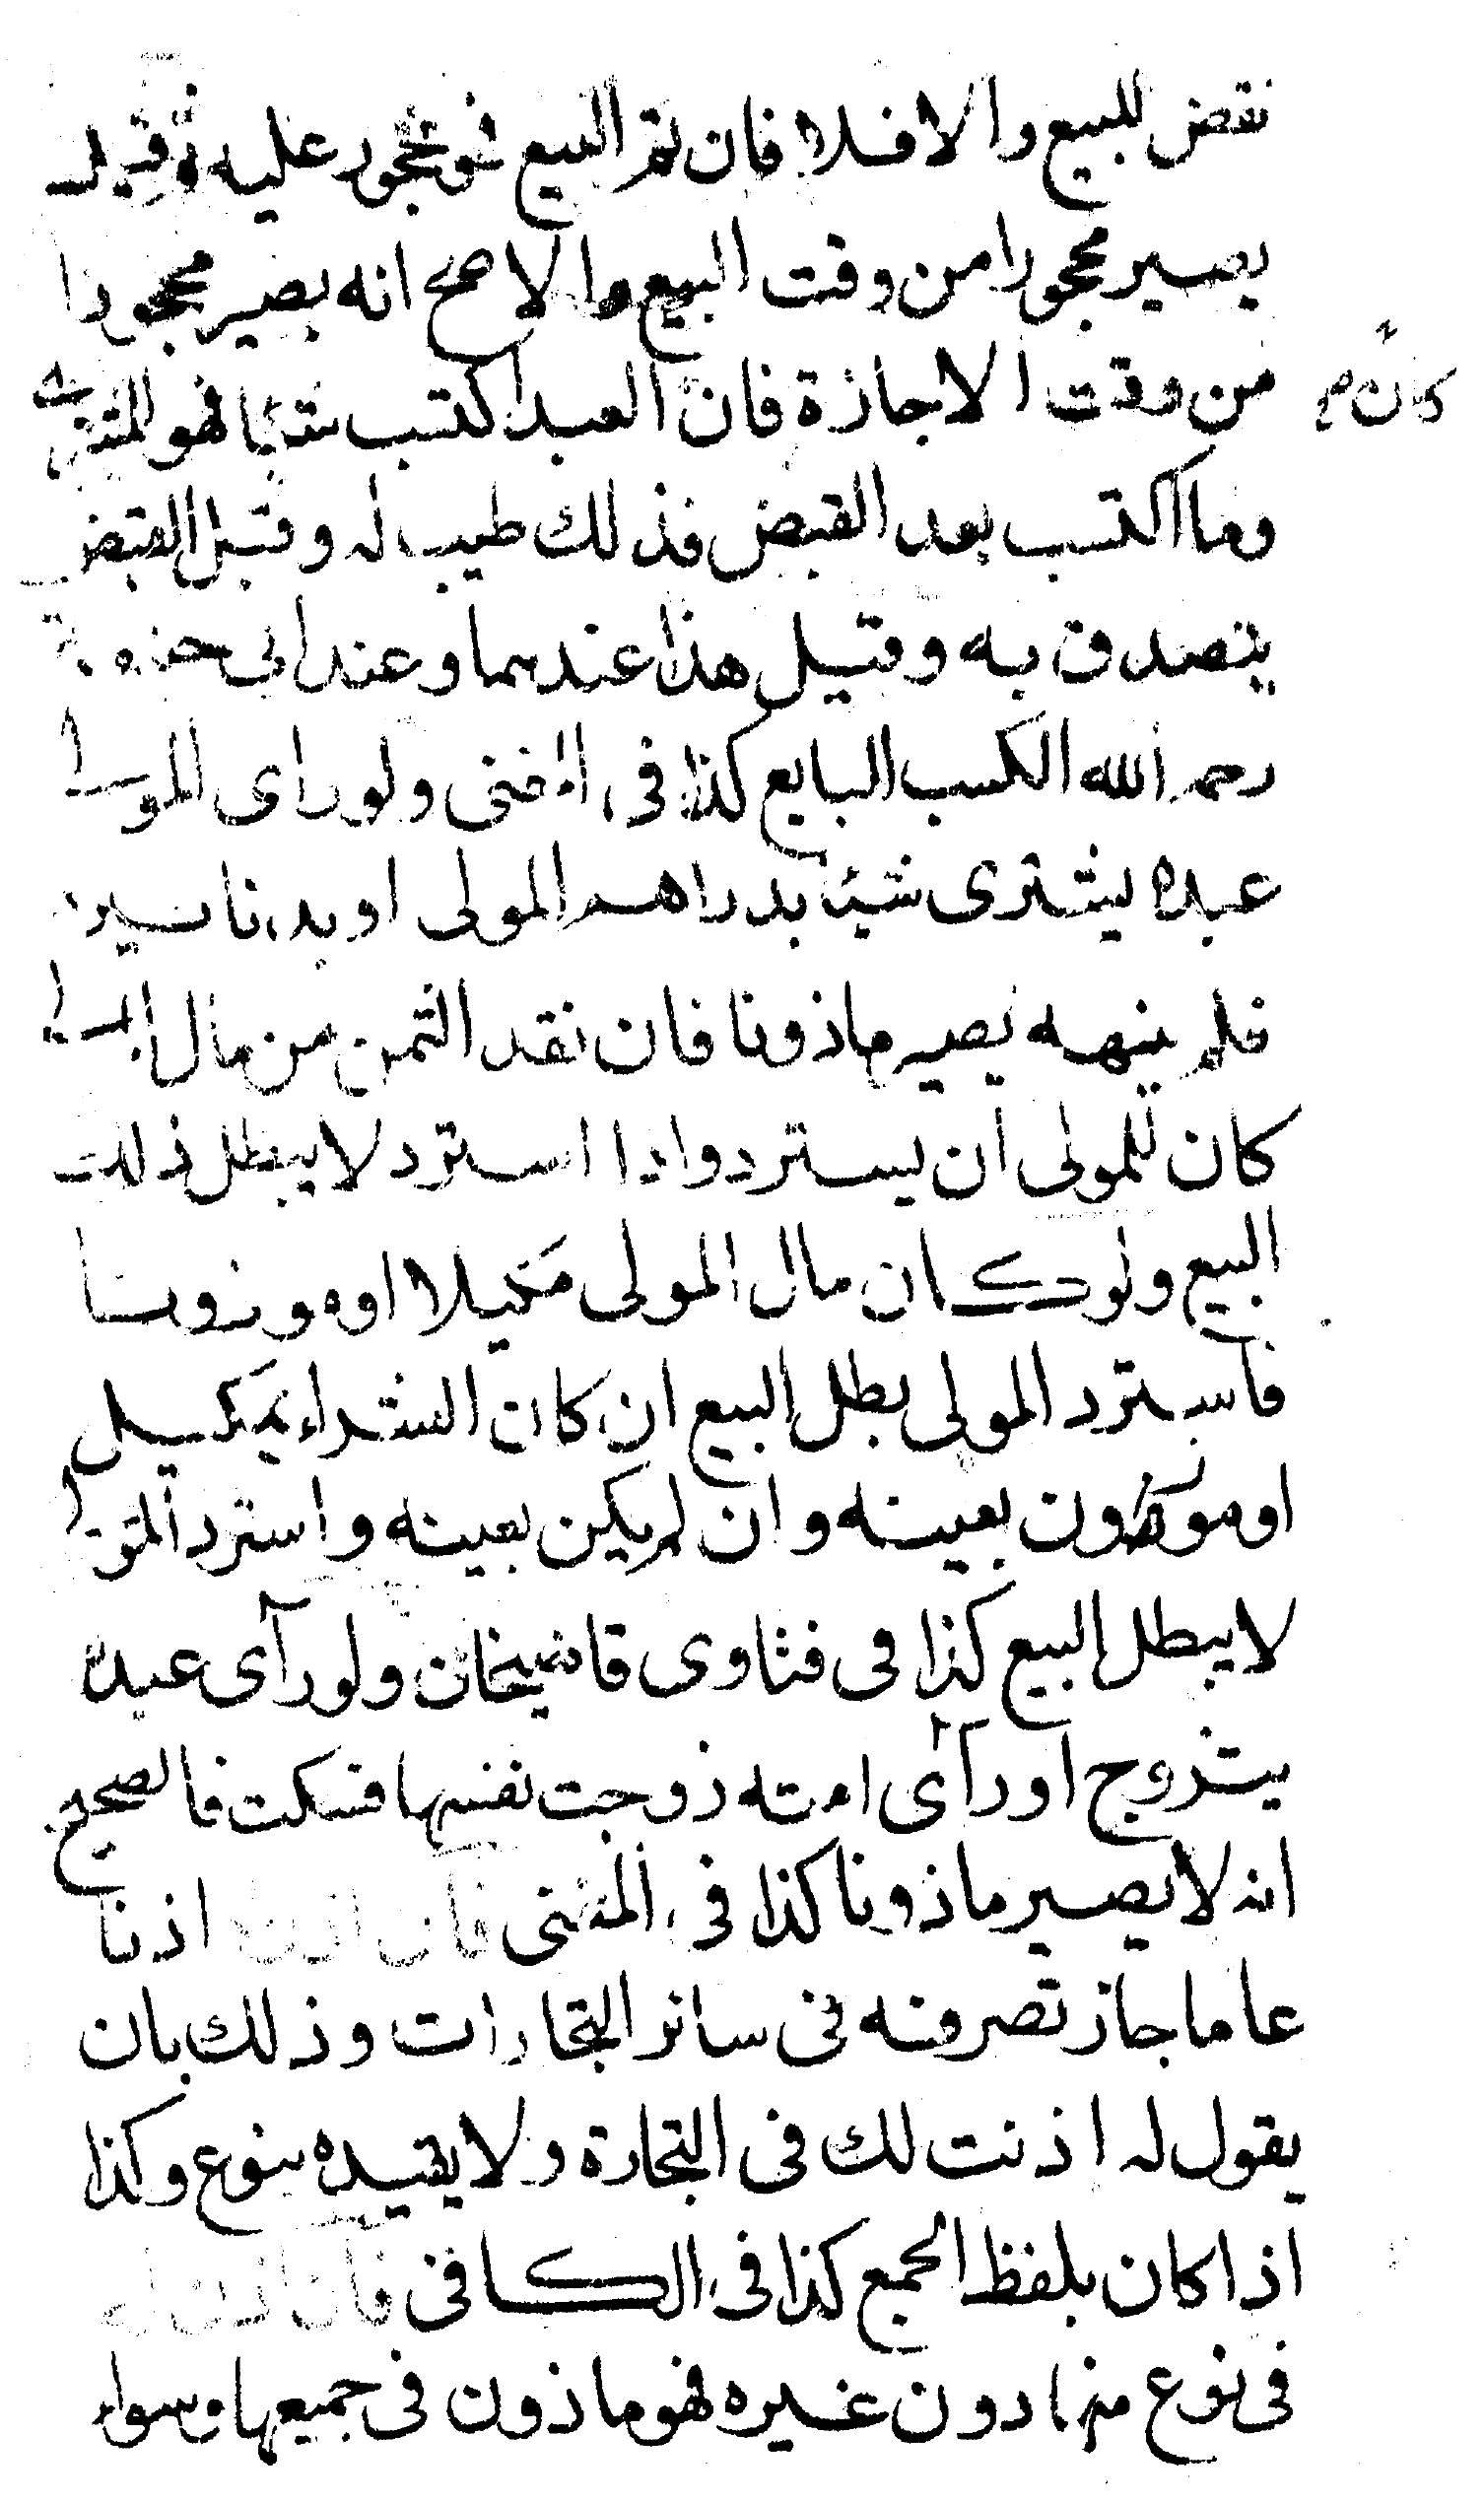 نقض للبيع والا فلا فان تم البيع فهو محجور عليه وقيل
يصير محجورا من وقت البيع والاصح انه يصير محجورا
من وقت الاجازة فان العبد اكتسب شيئا فهو للمشترى
كان م
وما اكتسب بعد القبض فذلك طيب له وقبل القبض
يتصدق به وقيل هذا عندهما وعند ابى حنيفة
رحمه الله الكسب البايع كذا فى المغنى ولو راى المولى
عبده يشترى شيئا بدراهم المولى او بدنانير
فلم ينهه يصير ماذونا فان نقد الثمن من مال المولى
كان للمولى ان يسترد واذا استرد لا يبطل ذلك
البيع ولو كان مال المولى مكيلا او موزونا
فاسترد المولى بطل البيع ان كان الشراء بمكيل
او موزون بعينه وان لم يكن بعينه واسترد المولى
لا يبطل البيع كذا فى فتاوى قاضيخان ولو رآى عبده
يتزوج او رآى امته زوجت نفسها فسكت فالصحيح
انه لا يصير ماذونا كذا فى المغنى فان اذن اذنا
عاما جاز تصرفه فى سائر التجارات وذلك بان
يقول له اذنت لك فى التجارة ولا يقيده بنوع وكذا
اذا كان بلفظ الجمع كذا فى الكافى فان اذن له
فى نوع منها دون غيره فهو ماذون فى جميعها وسواء